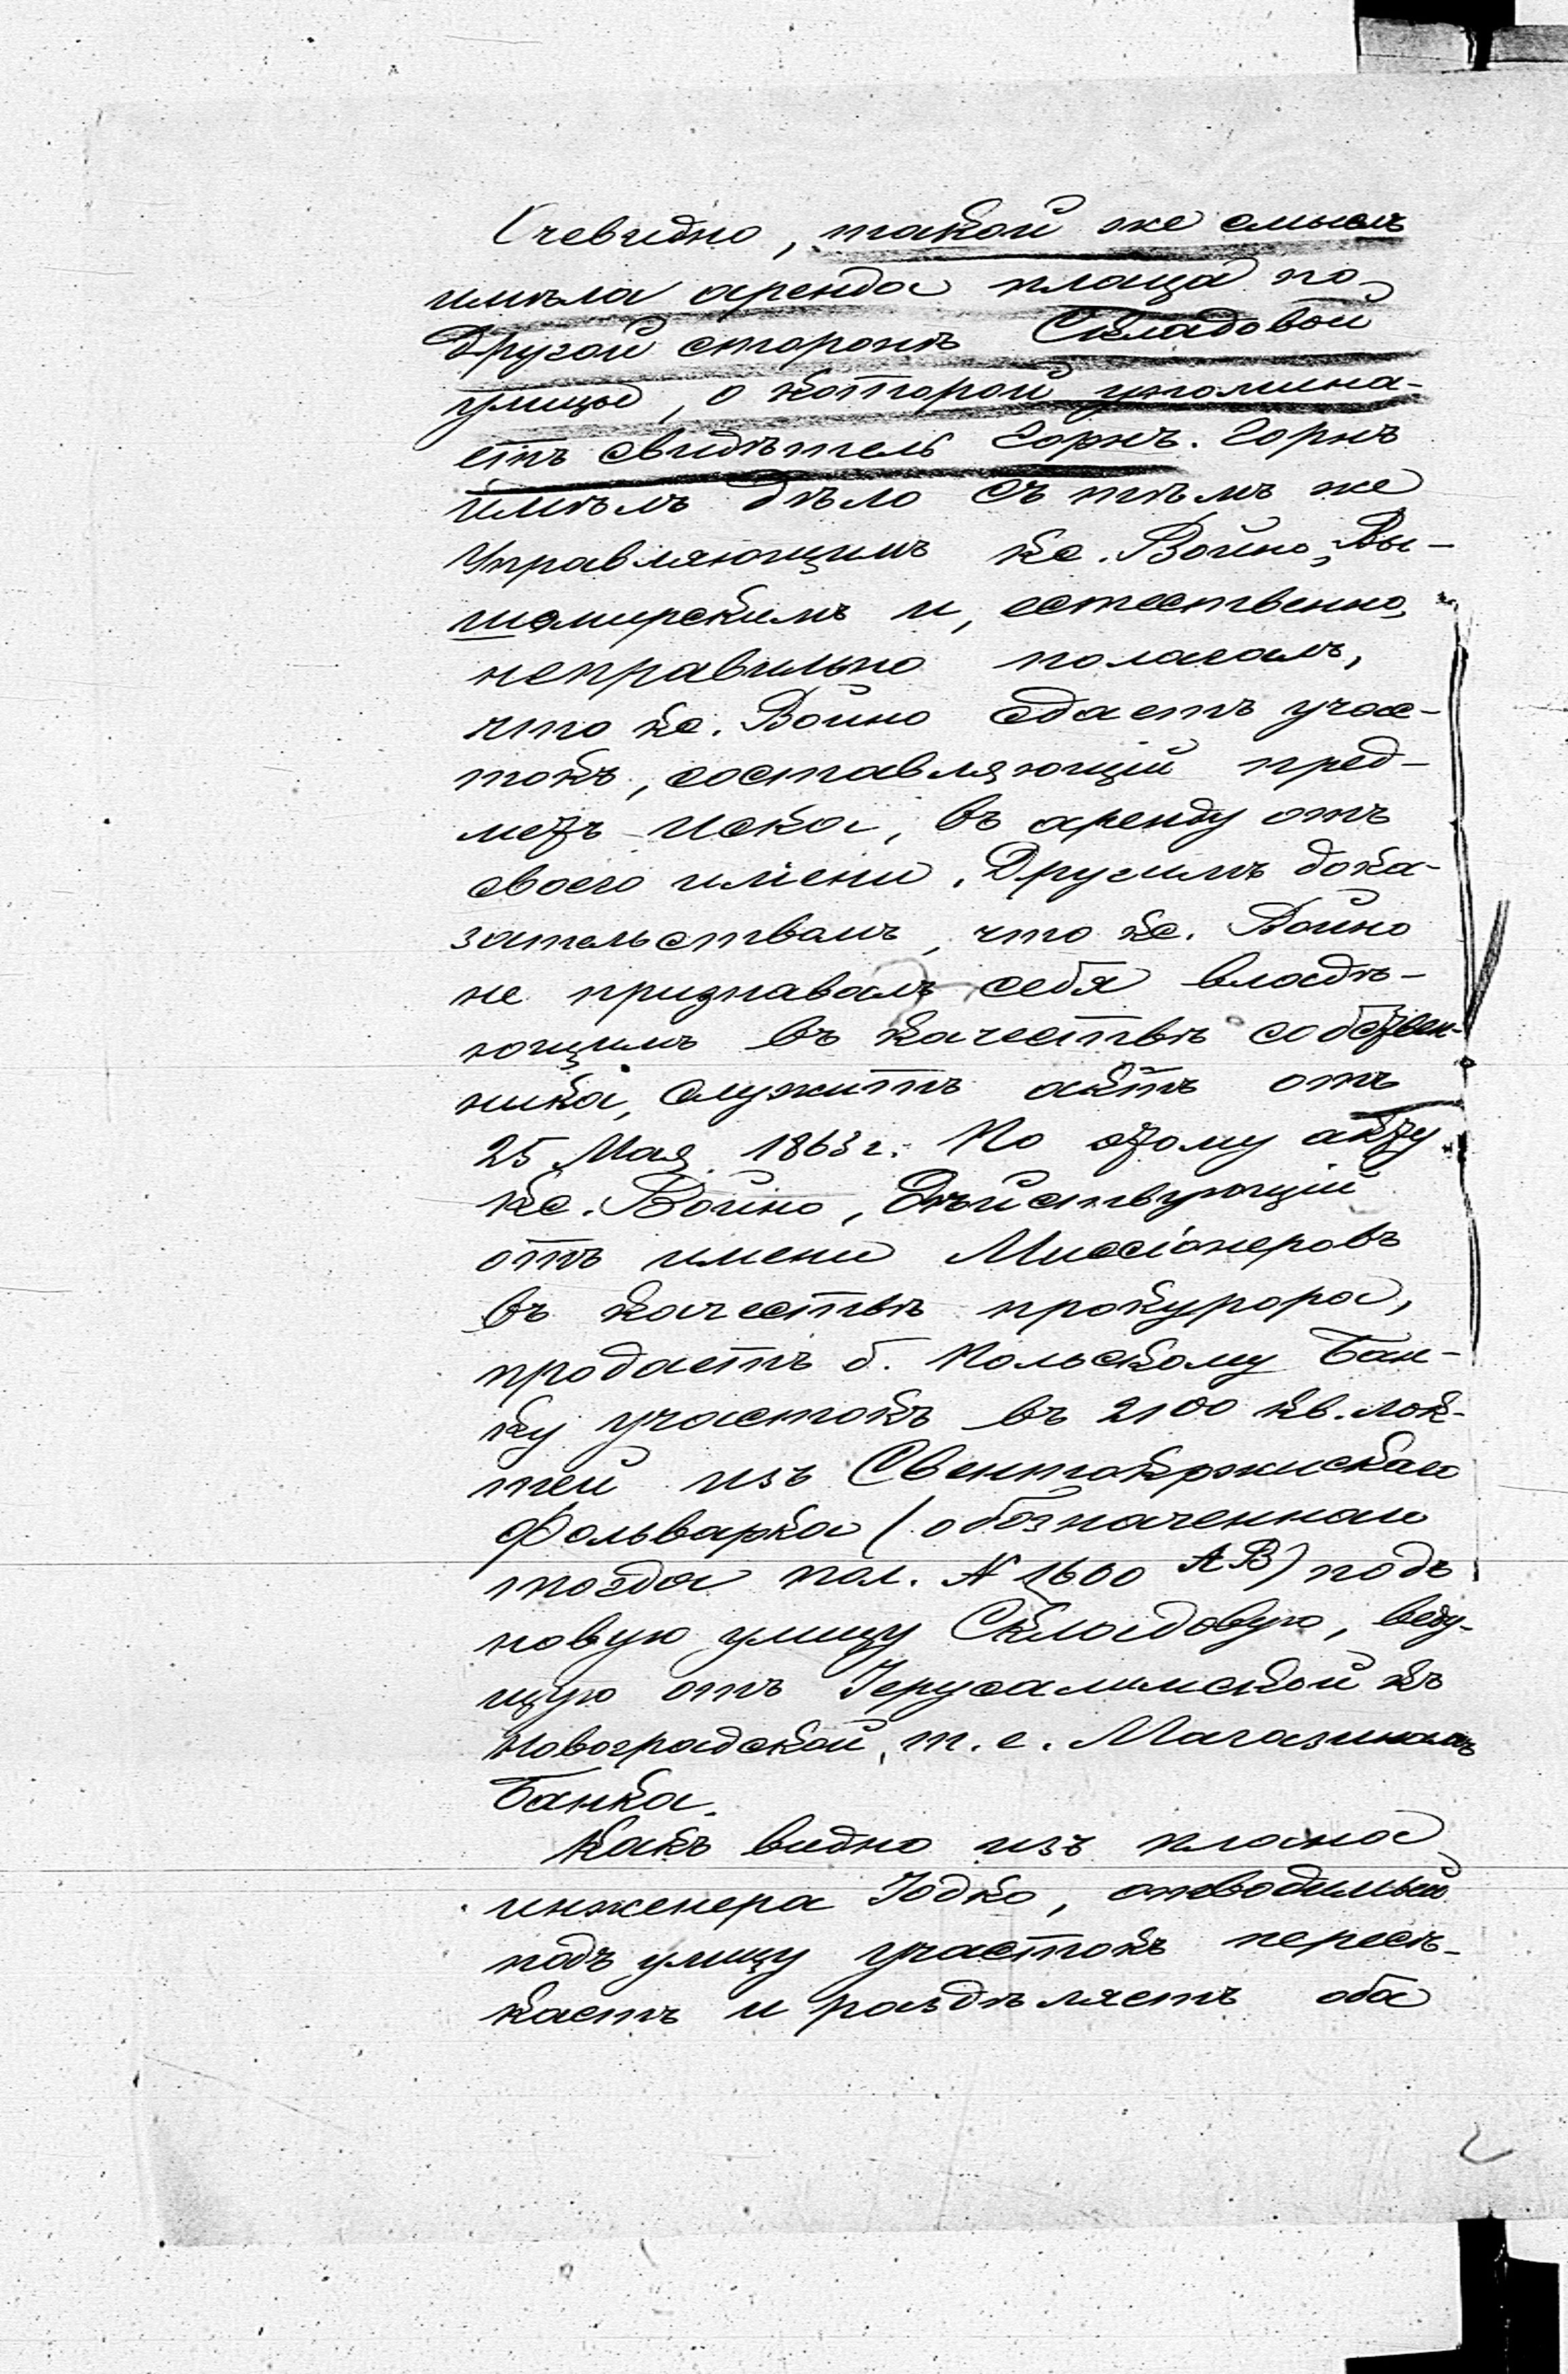 Очевидно, такой же смыслъ
имѣла аренда плаца по
другой сторонѣ Складовой
улицы, о которой упомина-
етъ свидѣтель Горнъ. Горнъ
имѣлъ дѣло съ тѣмъ же
Управляющимъ кс. Войно, Вы-
шомирскимъ и, естественно,
неправильно полагалъ,
что кс. Войно сдаетъ учас-
токъ, составляющій пред-
метъ иска, въ аренду отъ
своего имени. Другимъ дока-
зательствомъ, что кс. Войно
не признавалъ себя владѣ-
ющимъ въ качествѣ собствен-
ника, служитъ актъ отъ
25 Мая 1863 г. По этому акту
кс. Войно, дѣйствующій
отъ имени Миссіонеровъ
въ качествѣ прокурора,
продаетъ б. Польскому Бан-
ку участокъ въ 2100 кв. лок-
тей изъ Свентокржискаго
фольварка (обозначеннаго
тогда пол. № 1600 АВ) подъ
новую улицу Складовую, веду-
щую отъ Іерусалимской къ
Новоградской, т. е. Магазинамъ
Банка.
Какъ видно изъ плана
инженера Іодко, отводимый
подъ улицу участокъ пересѣ-
каетъ и раздѣляетъ оба